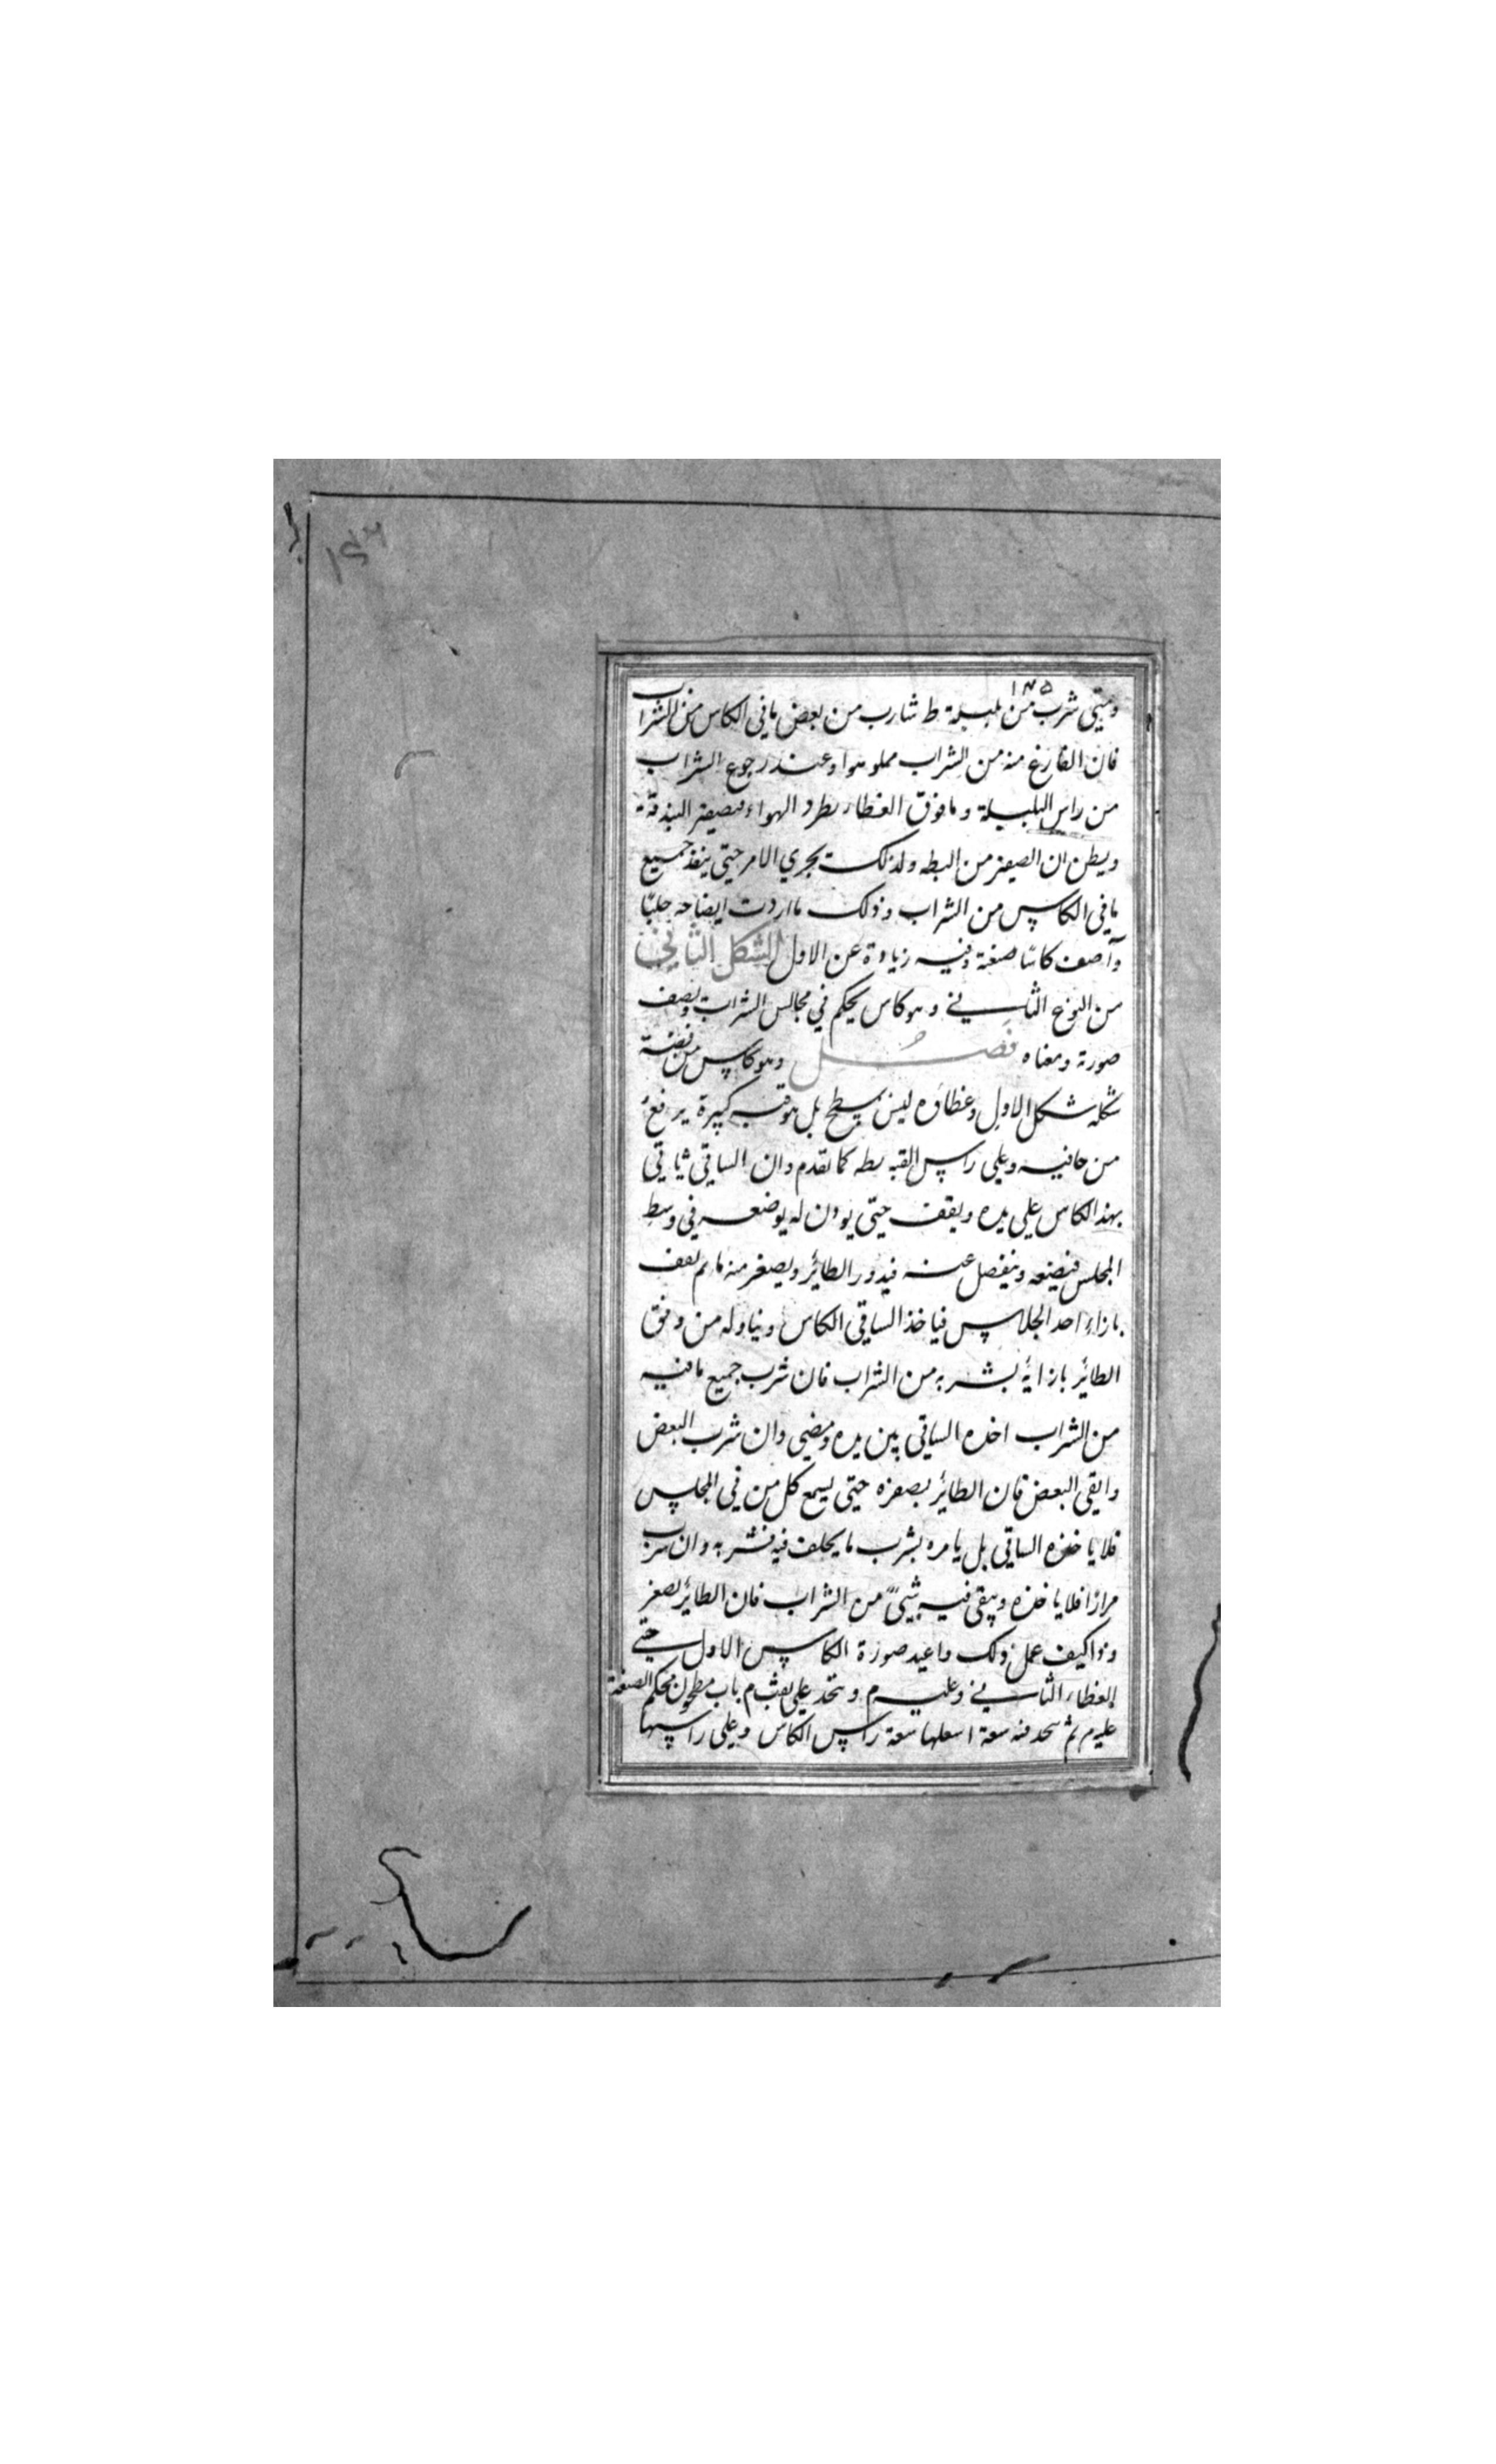 ١٤٦
١٣٥
ومتى شرب من بلبلة ط شارب من بعض ما فى الكاس من الشراب
فان الفارغ منه من الشراب مملو هوا وعند رجوع الشراب
من راس البلبلة وما فوق الغطاء يطرد الهواء فيصفر البندقة
ويظن ان الصفير من البطه ولذلك يجري الامر حتى ينفذ جميع
ما فى الكاس من الشراب وذلك ما اردت ايضاحه جليّا
وآصف كاسًا صنعة وفيه زيادة عن الاول الشكل الثاني
من النوع الثاني وهو كاس يحكم في مجالس الشراب ويصف
صورة ومعناه فصل وهو كاس من فضة
شكله شكل الاول وغطاؤه ليس بمسطح بل هو قبه كبيرة يرفع
من حافيه وعلى راس القبه بطه كما تقدم وان الساقي ياتي
بهذا الكاس على يده ويقف حتى يوذن له بوضعه في وسط
المجلس فيضعه وينفصل عنه فيدور الطائر ويصفر منه ما ثم يقف
بازاء احد الجلاس فياخذ الساقي الكاس ويناوله من وقف
الطائر بازائه يشربه من الشراب فان شرب جميع ما فيه
من الشراب اخذه الساقي بين يده ومضى وان شرب البعض
وابقى البعض فان الطائر يصفره حتى يسمع كل من في المجلس
فلا ياخذه الساقي بل يامره بشرب ما يخلف فيه فشربه وان شرب
مرارًا فلا ياخذه ويبقى فيه شيئ من الشراب فان الطائر يصفر
وذا كيف عمل ذلك واعيد صورة الكاس الاول حتى
الغطاء الثاني وعليه م ويتخذ على ثقب م باب مطحون محكم الصنعة
عليه م ثم يتخذ قبه سعة اسفلها سعة راس الكاس وعلى راسها